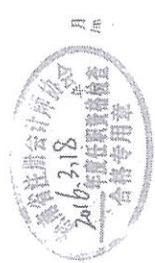 省注册会计师协会
2016.3.18
年度任职资格检查
合格专用章
月
/m